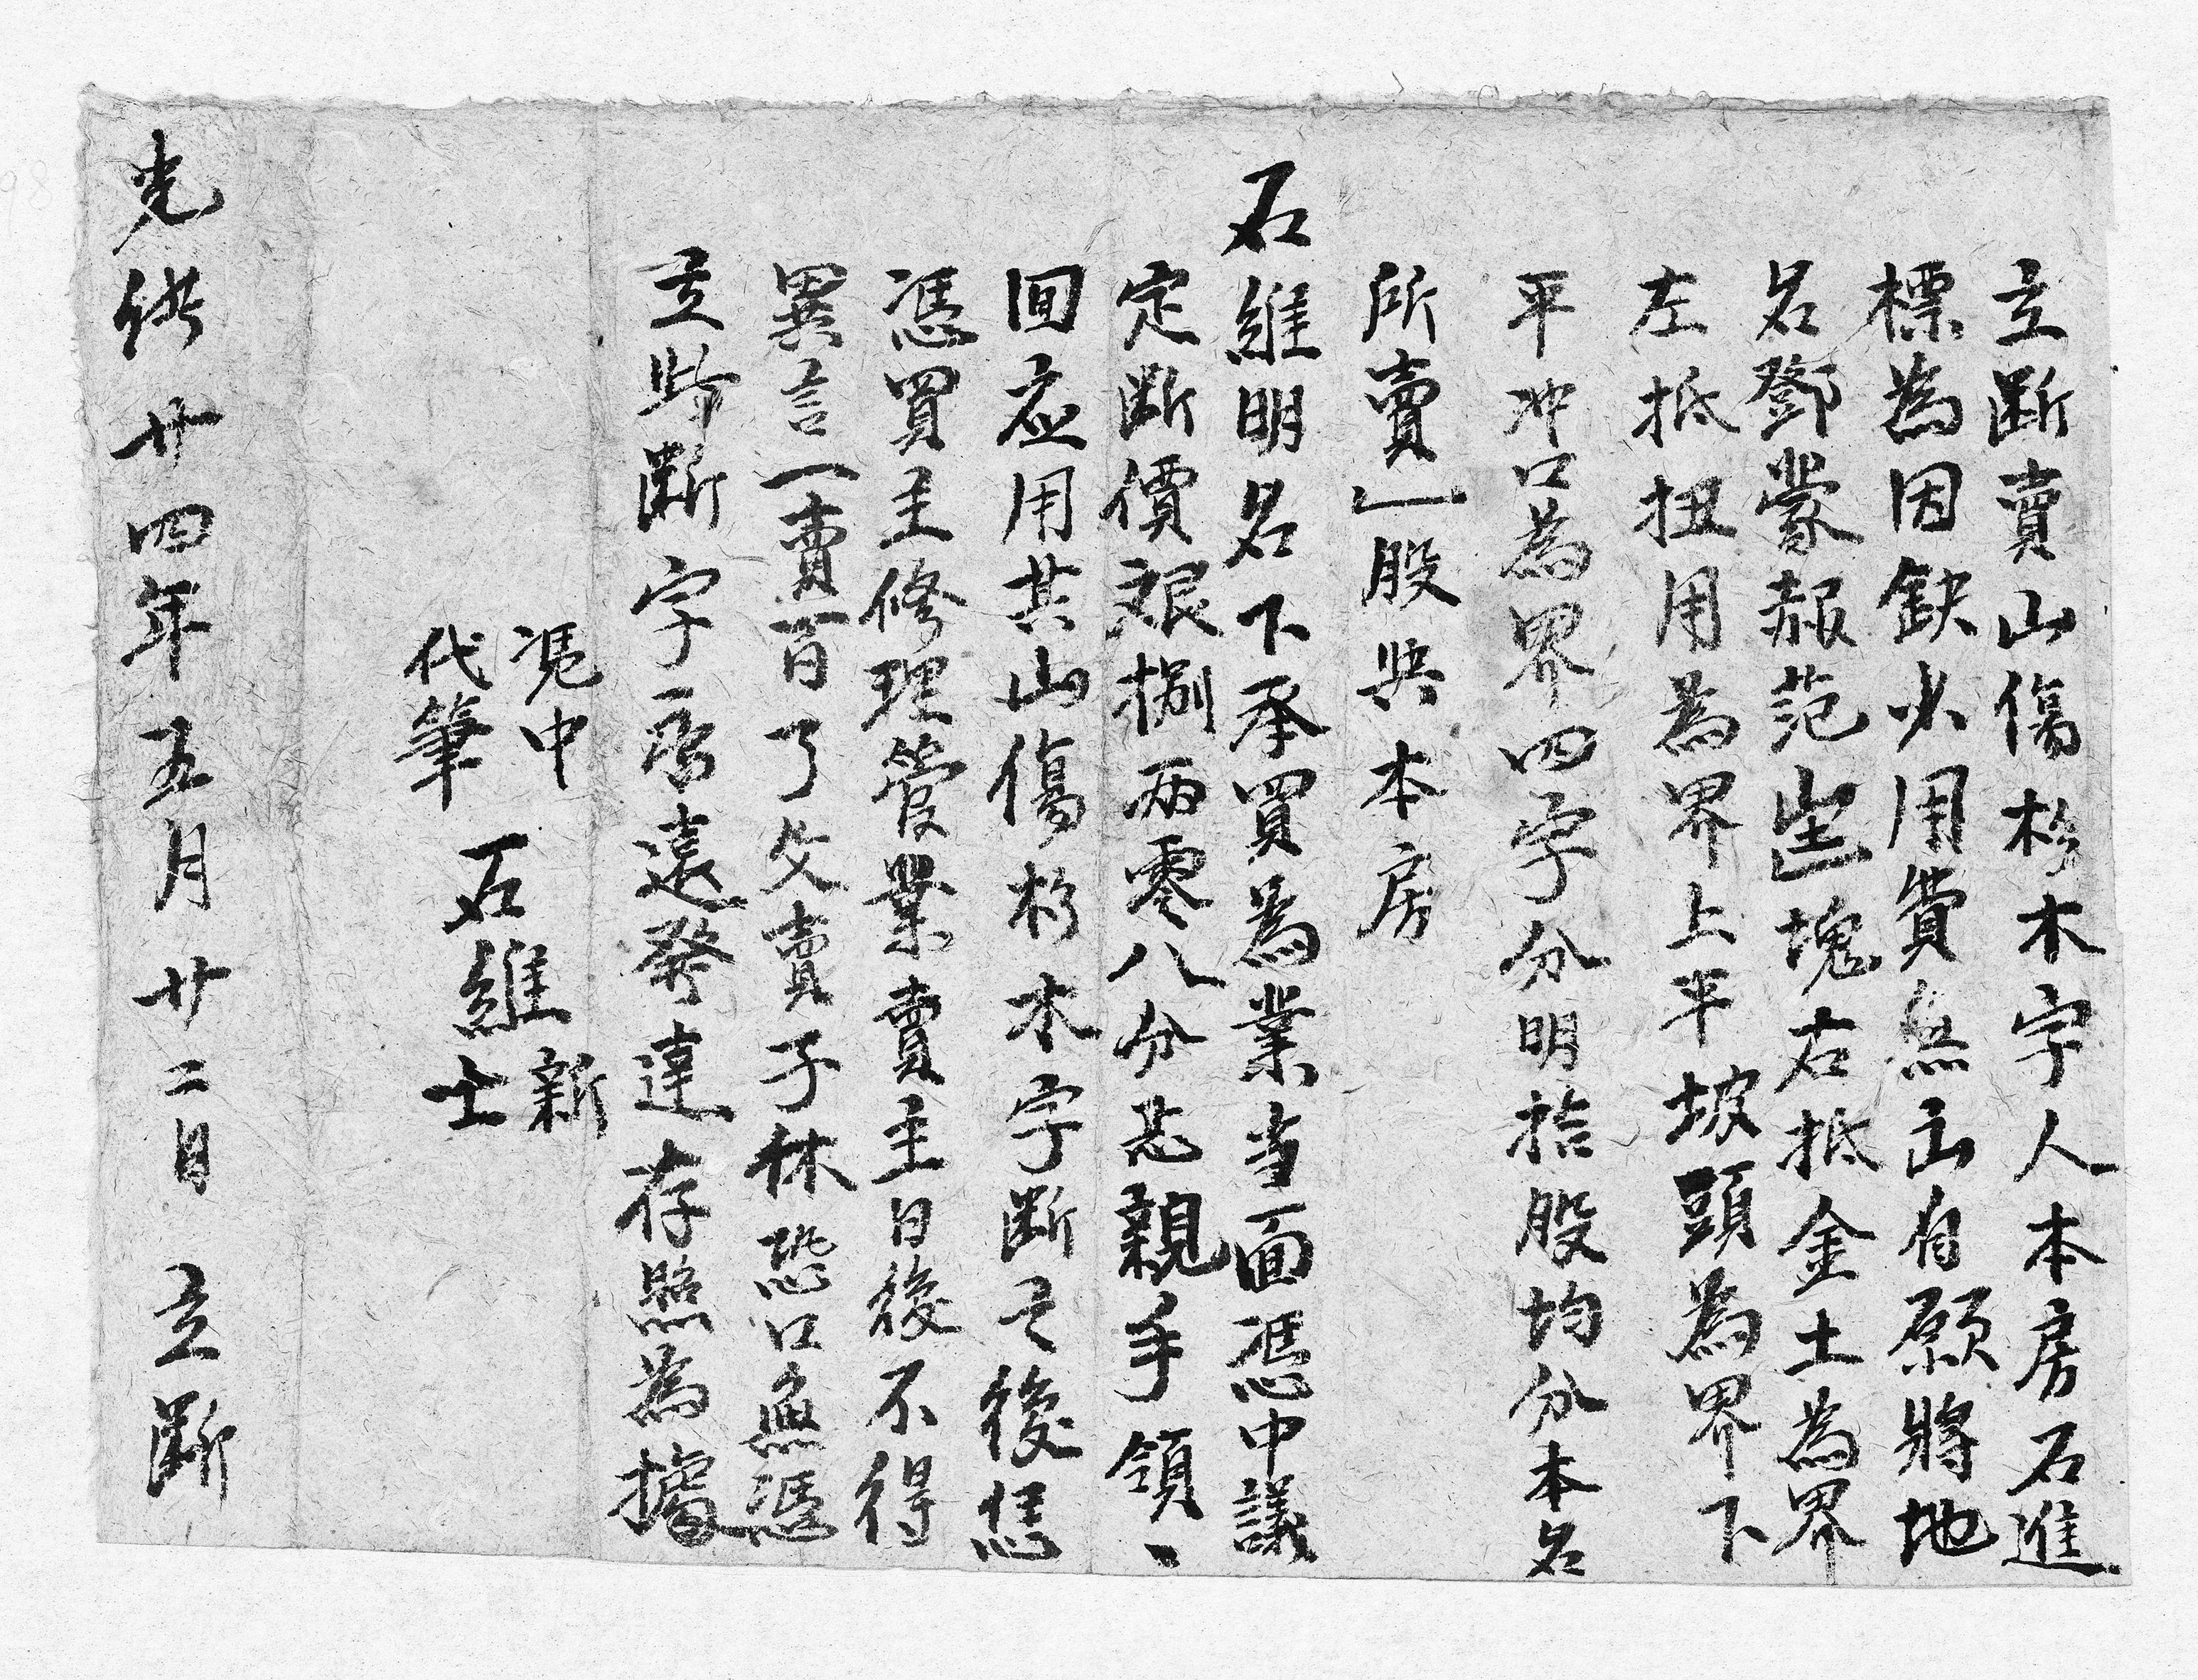 立断賣山傷杉木字人本房石進
標為因缺少用費無 自願將地
名鄧蒙赧范 塊右抵金土為界
左抵扭用為界上平坡頭為界下
平冲口為界四字分明拾股均分本名
所賣一股與本房
石維明名下承買為業当面憑中議
定断價艮捌両零八分 親手領、
回应用其山傷杉木字断之後恁
憑買主修理管業賣主日後不得
異言一賣百了父賣子休恐口無憑
立此断字永遠發達存照為據
憑中 石維新
代筆 石維士
光緒廿四年五月廿二日 立断